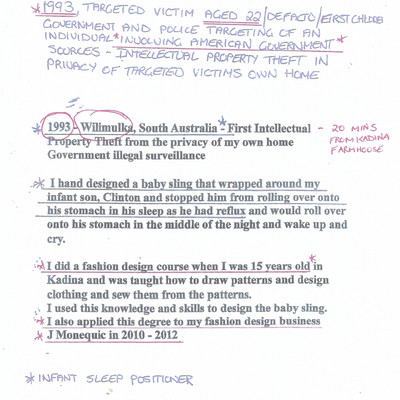 *1993, TARGETED VICTIM AGED 22/DEFACTO/FIRST CHILD &
GOVERNMENT AND POLICE TARGETING OF AN
INDIVIDUAL *INVOLVING AMERICAN GOVERNMENT*
SOURCES - INTELLECTUAL PROPERTY THEFT IN
PRIVACY OF TARGETED VICTIMS OWN HOME
* 1993 - Wilimulka, South Australia *- First Intellectual
Property Theft from the privacy of my own home
Government illegal surveillance
- 20 MINS
FROM KADINA
FARMHOUSE
* I hand designed a baby sling that wrapped around my
infant son, Clinton and stopped him from rolling over onto
his stomach in his sleep as he had reflux and would roll over
onto his stomach in the middle of the night and wake up and
cry.
* I did a fashion design course when I was 15 years old* in
Kadina and was taught how to draw patterns and design
clothing and sew them from the patterns.
I used this knowledge and skills to design the baby sling.
* I also applied this degree to my fashion design business
* J Monequic in 2010 - 2012
*INFANT SLEEP POSITIONER